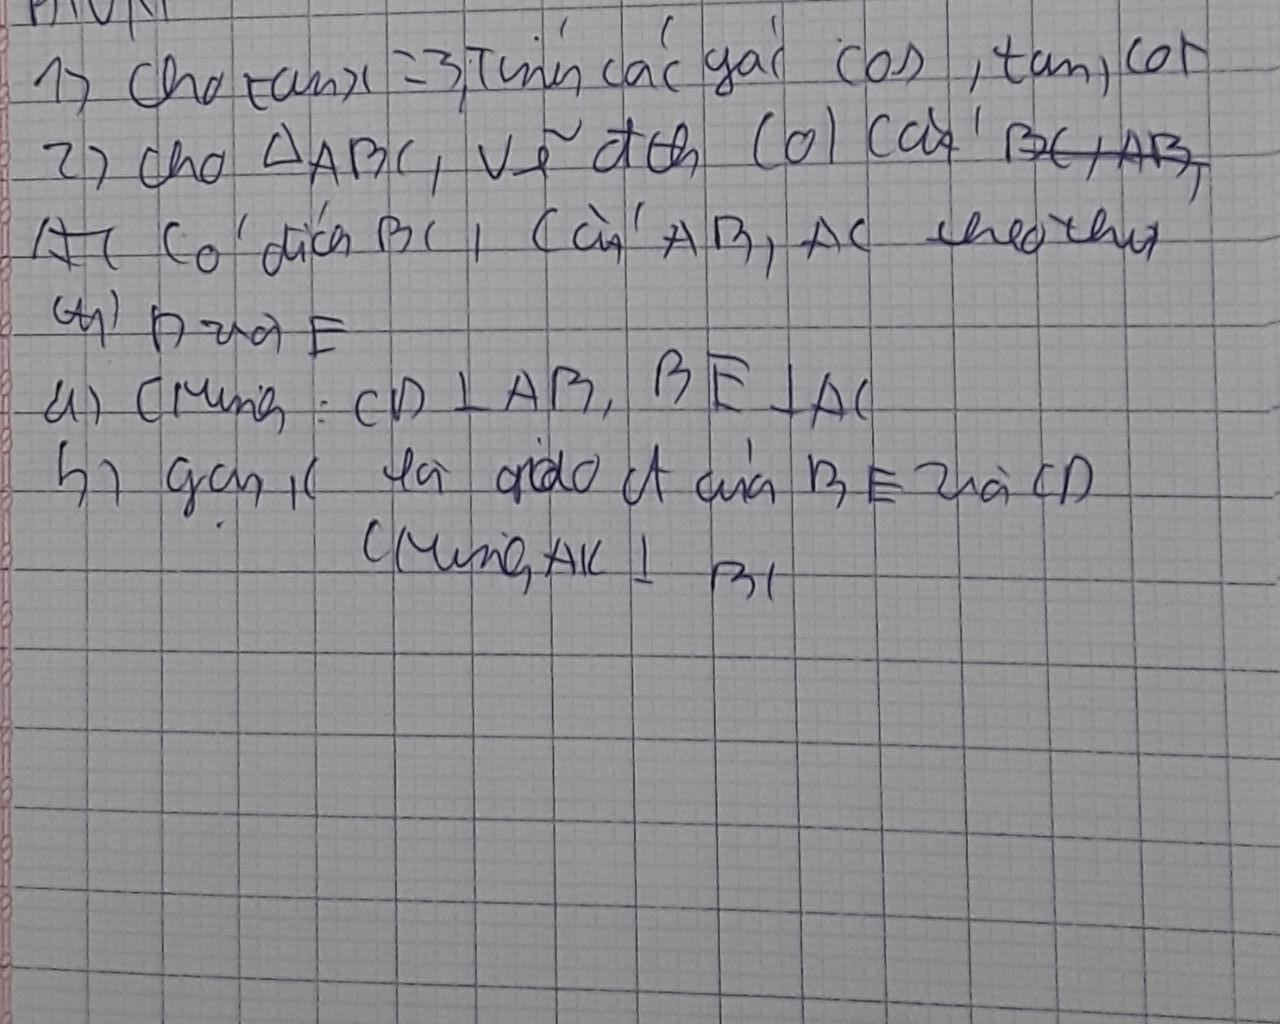 1) Cho tanx = 3, Tính các giá cos, tan, cot
2) Cho ΔABC, vẽ đtth (O) cắt
có đkính BC, cắt AB, AC theo thứ
tự D và E
a) CMinh: CD ⊥ AB, BE ⊥ AC
b) gọi K là giao đ của BE và CD
CMinh, AK ⊥ BC